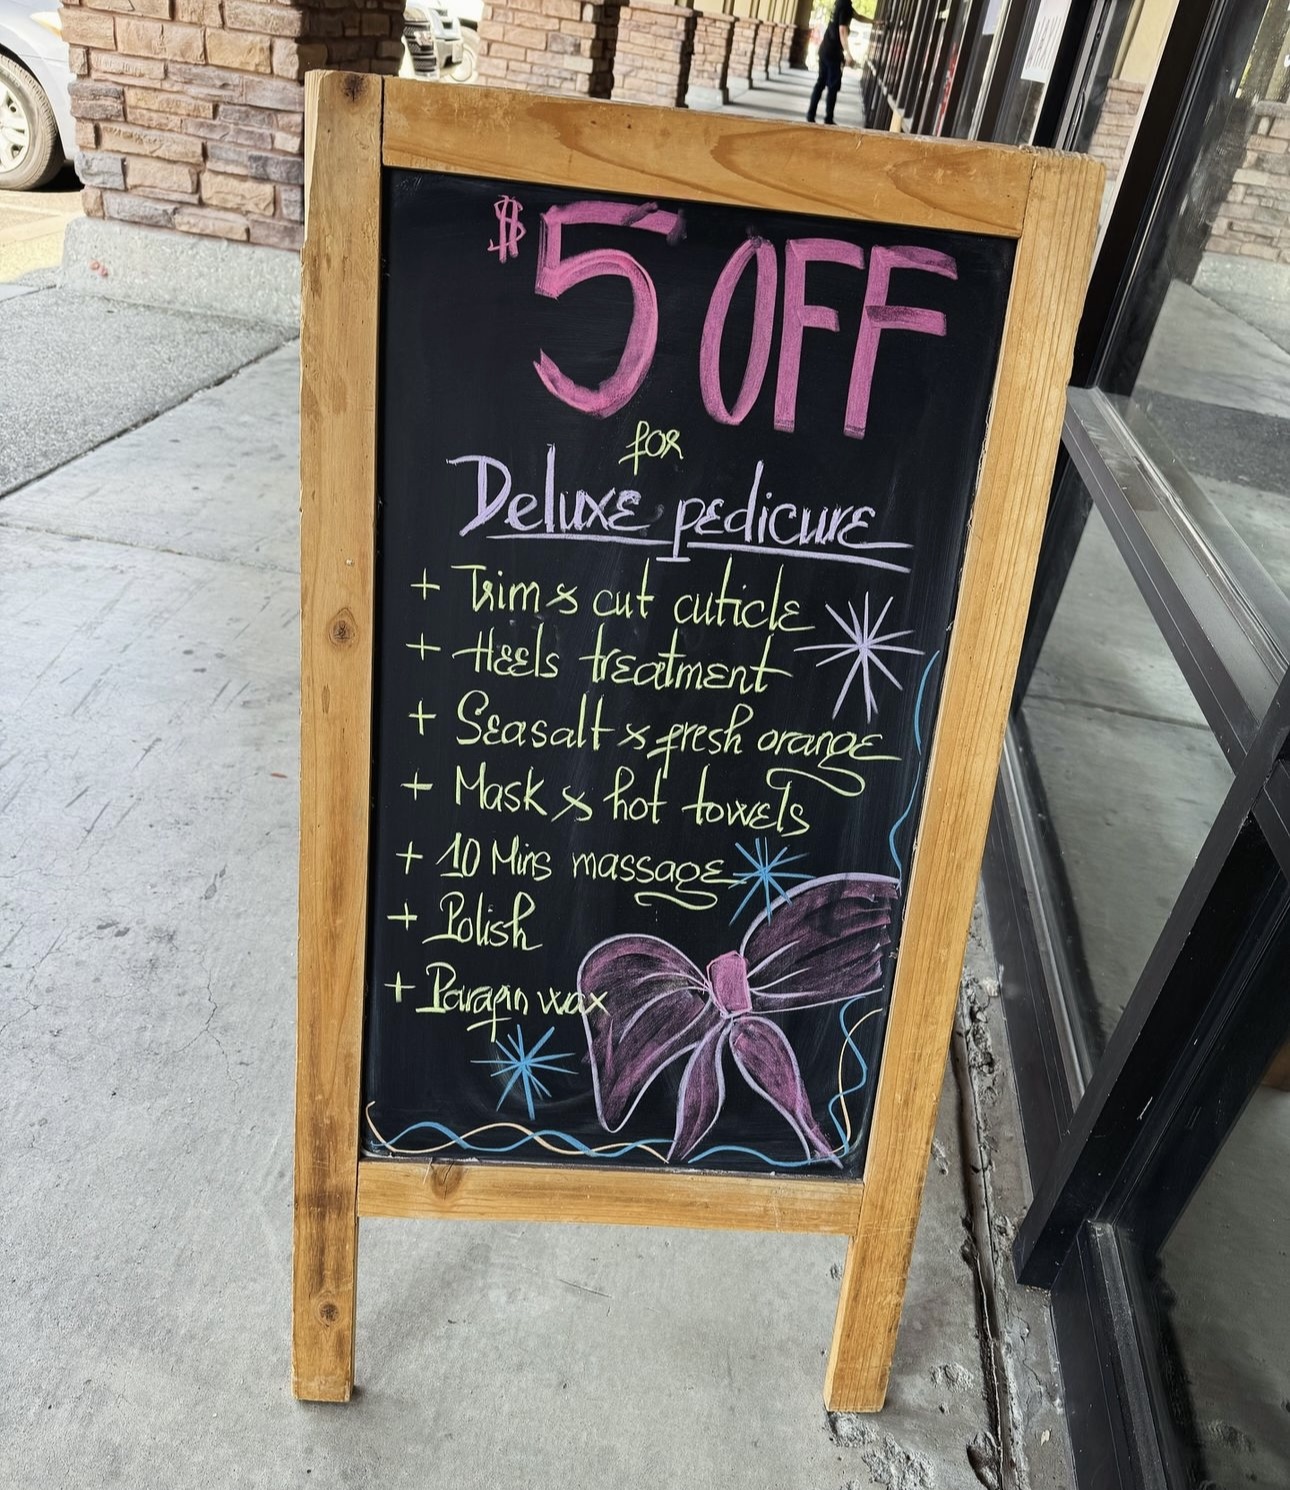 $5 OFF
for
Deluxe pedicure
+ Trim & cut cuticle
+ Heels treatment
+ Seasalt & fresh orange
+ Mask & hot towels
+ 10 Mins massage
+ Polish
+ Parafin wax